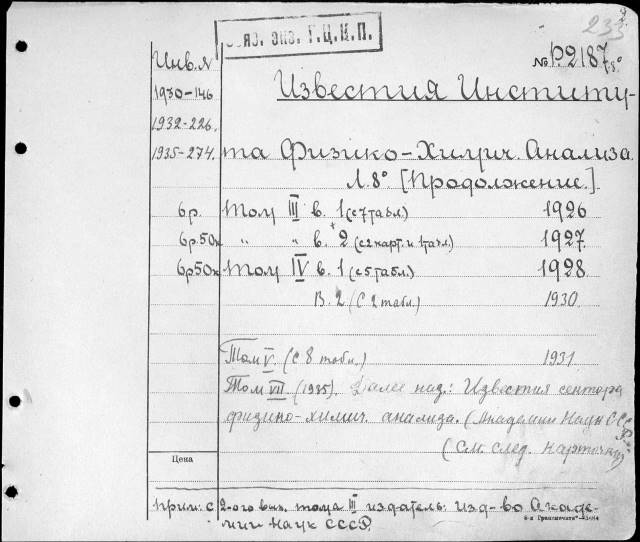 233
яз. экз. Г.Ц.К.П.
№ Р.2187/8°
Инв. №
Известия Институ-
1930-146
1932-226.
1935-274.
та Физико-Химич. Анализа.
Л. 8° [Продолжение.].
6 р. Том III в. 1 (с 7 табл.) 1926
6 р. 50к " " в. 2 (с 2 карт. и 1 табл.) 1927
6 р 50к Том IV в. 1 (с 5 табл.) 1928
В. 2 (с 2 табл.) 1930
Том V. (с 8 табл.) 1931
Том VII (1935). Далее наз.: Известия сектора
физико-химич. анализа. (Академии Наук СССР.
(См. след. карточку)
Цена
Прим: с 2-ого вып. тома III издатель: Изд-во Акаде-
мии Наук СССР.